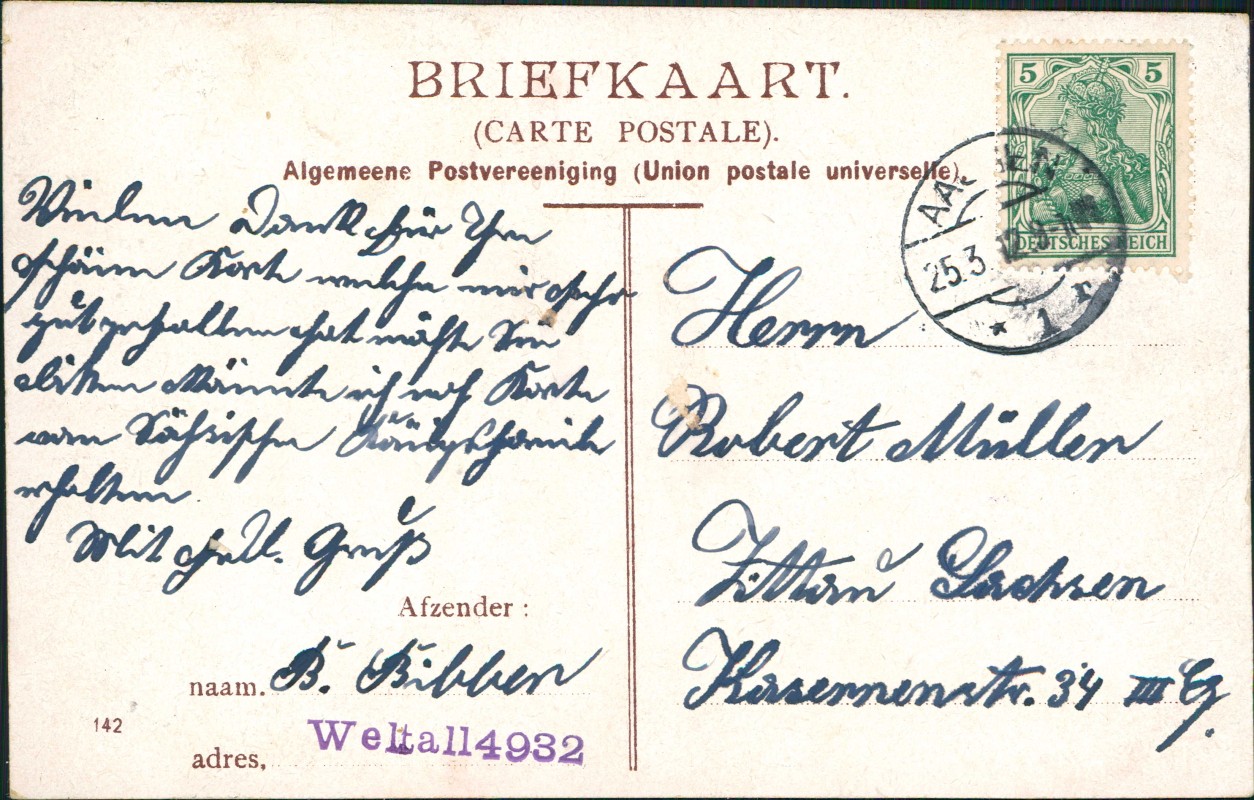 BRIEFKAART.
(CARTE POSTALE).
Algemeene Postvereeniging (Union postale universelle)
5 5
DEUTSCHES REICH
AACHEN
25.3.12. 8-
* 1 r
Vielen Dank für Ihre
schöne Karte welche mir sehr
gut gefallen hat möchte Sie
bitten könnte ich noch Karte
vom Sächsischen
erhalten.
Mit Gruß
Afzender :
naam. B. Bibber
142
adres, Weltall4932
Herrn
Robert Müller
Zittau Sachsen
Kasernenstr. 34 III